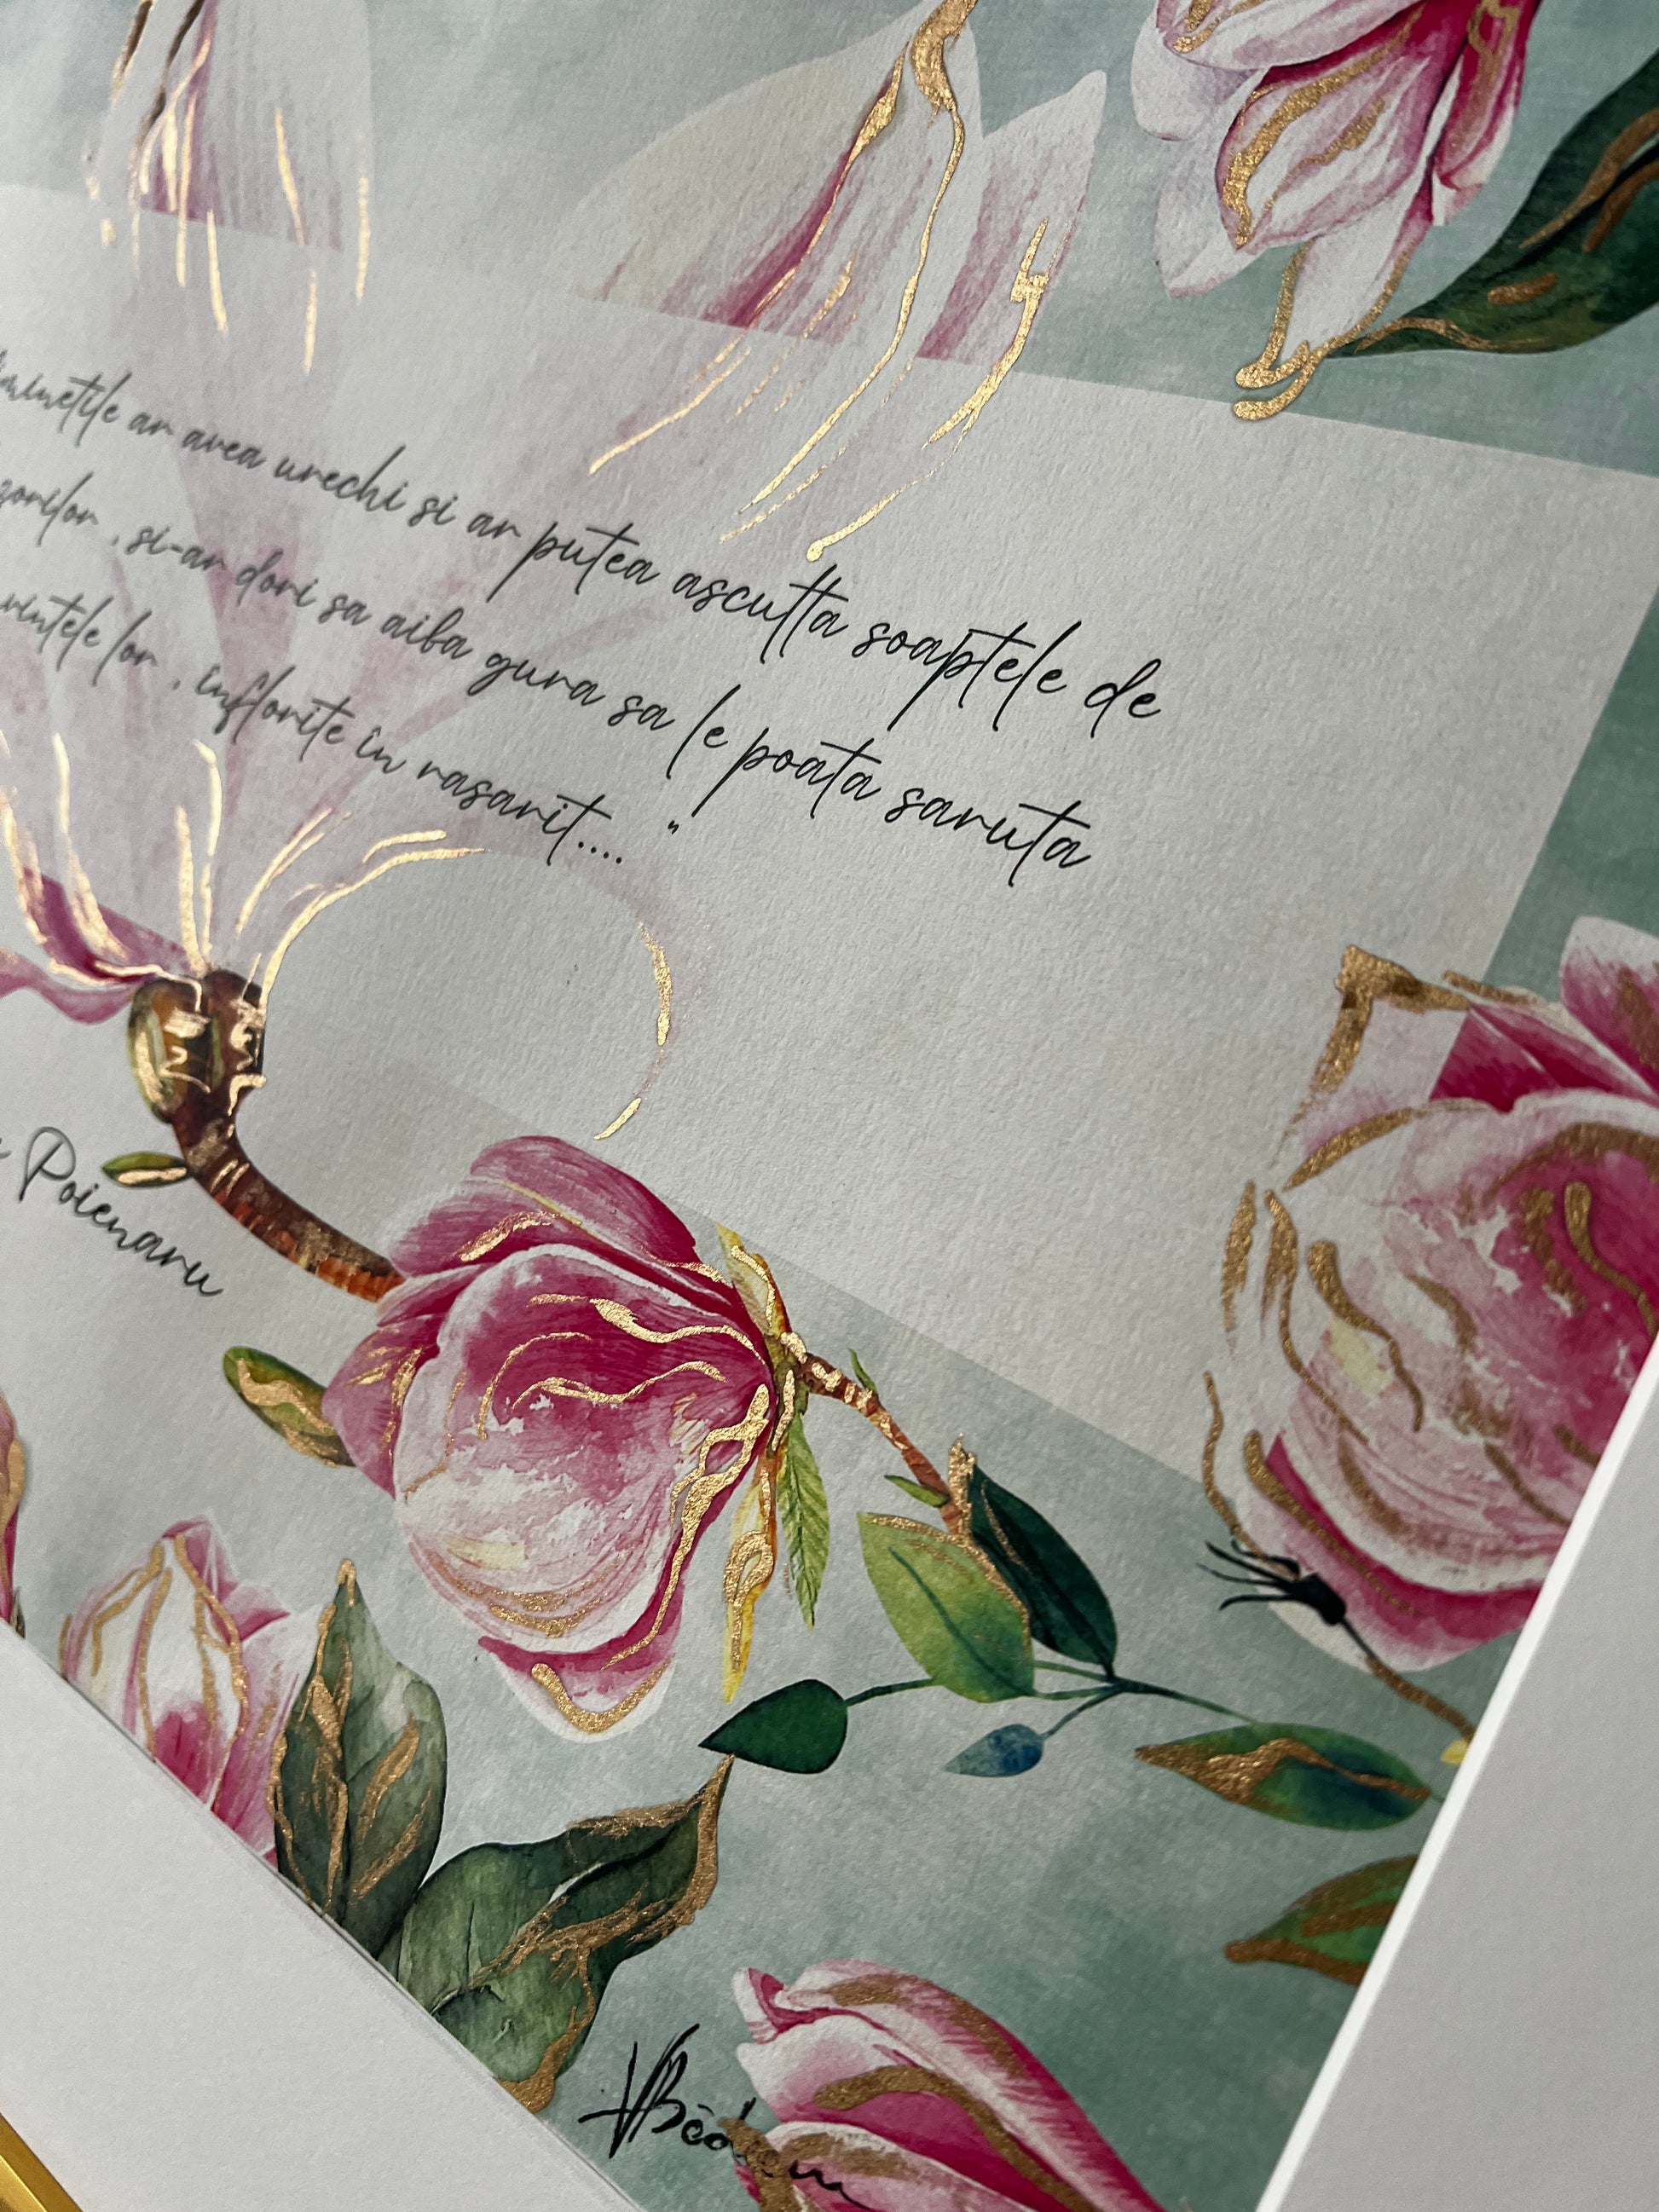 ar avea urechi si ar putea asculta soaptele de
zorilor , si-ar dori sa aiba gura sa le poata saruta
lor , inflorite in rasarit.... "
Poienaru